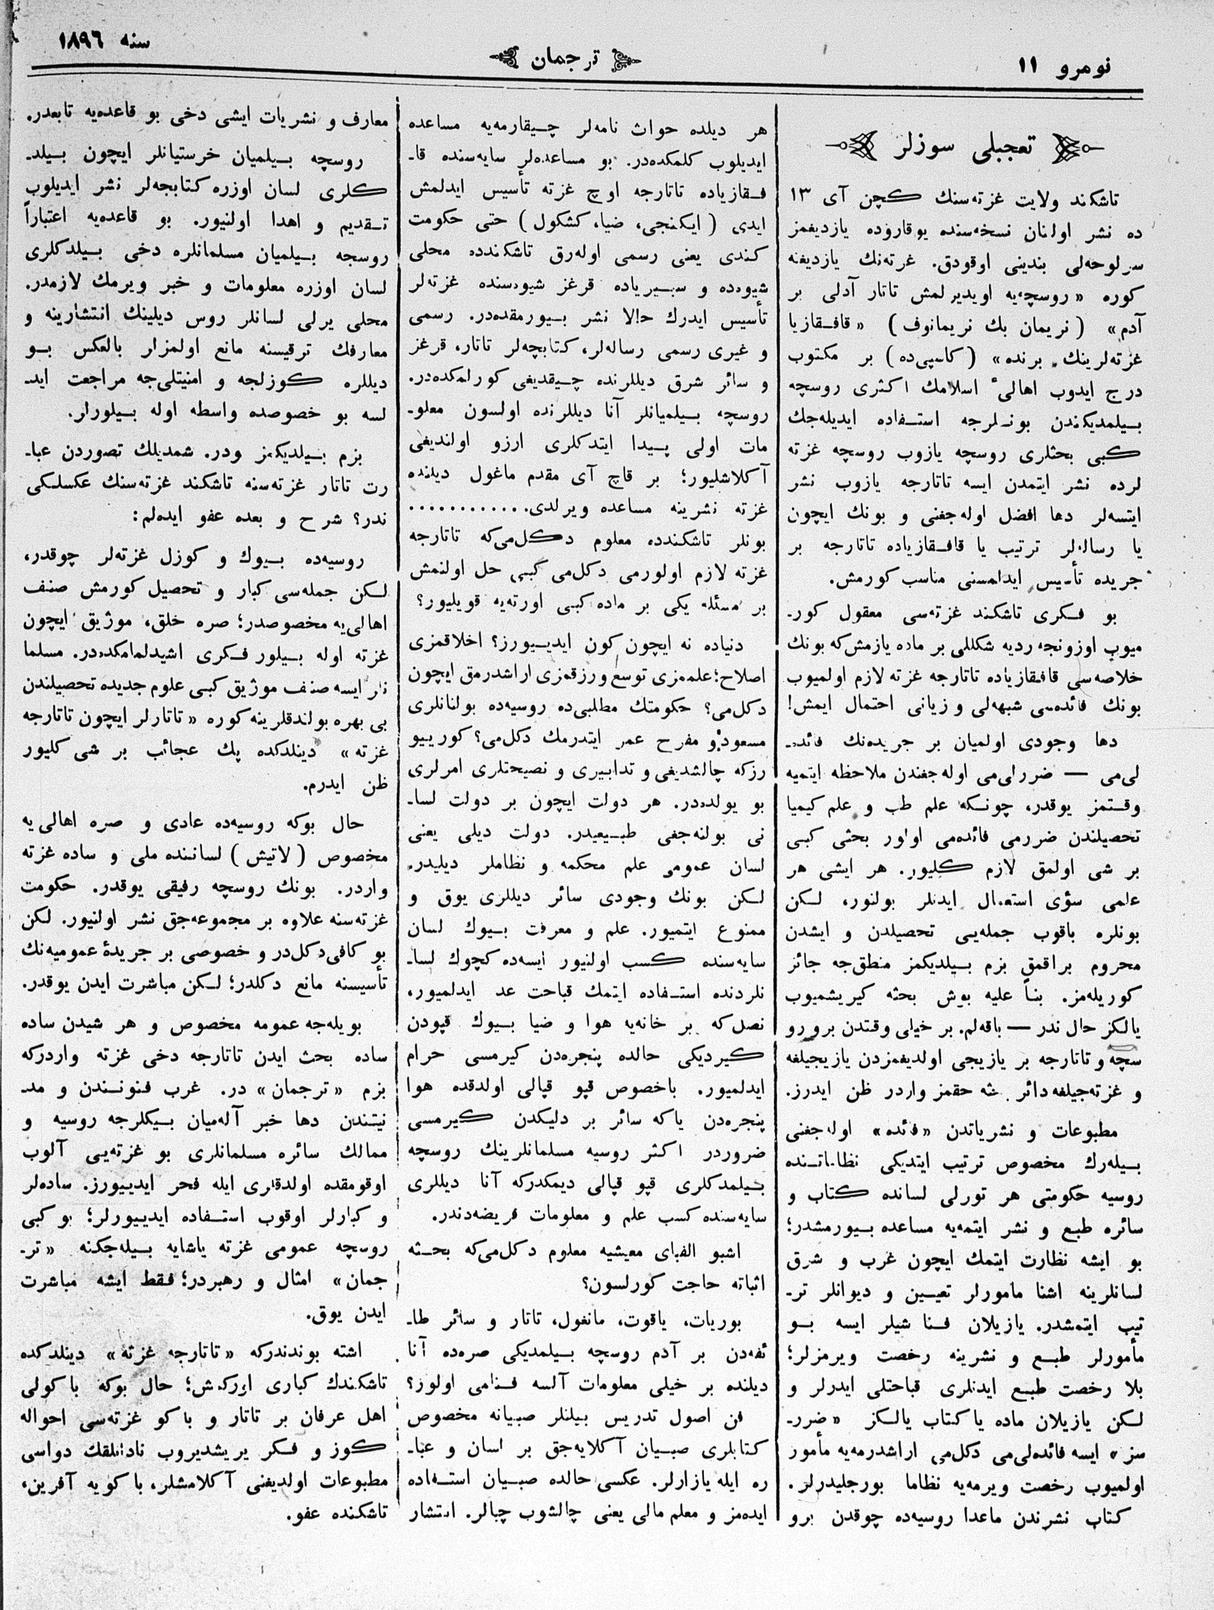 نومرو ١١
ترجمان
سنه ١٨٩٦
تعجبلی سوزلر
تاشكند ولایت غزته‌سنك كچن آی ١٣
ده نشر اولنان نسخه‌سنده یوقاروده یازدیغمز
سرلوحه‌لی بندینی اوقودق. غزته‌نك یازدیغنه
كوره «روسچه‌یه اویدیرلمش تاتار آدلی بر
آدم» (نریمان بك نریمانوف) «قافـقازیا
غزته‌لرینك برنده» (كاسپی‌ده) بر مكتوب
درج ایدوب اهالیٔ اسلامك اكثری روسچه
بیلمدیكندن بونـلرجه استـفاده ایدیله‌جك
كبی بحثلری روسچه یازوب روسچه غزته
لرده نشر ایتمدن ایسه تاتارجه یازوب نشر
ایتسه‌لر دها افضل اوله‌جغنی و بونك ایچون
یا رساله‌لر ترتیب یا قافـقازیاده تاتارجه بر
جریده تأسیس ایدلمسنی مناسب كورمش.
بو فـكری تاشكند غزته‌سی معقول كور-
میوب اوزونجه ردیه شكللی بر ماده یازمش‌كه بونك
خلاصه‌سی قافـقازیاده تاتارجه غزته لازم اولمیوب
بونك فائده‌سی شبهه‌لی و زیانی احتمال ایمش!
دها وجودی اولمیان بر جریده‌نك فائده-
لی‌می — ضررلی‌می اوله‌جغندن ملاحظه ایتمیه
وقـتمز یوقدر، چونـكه علم طب و علم كیمیا
تحصیلندن ضررمی فائده‌می اولور بحثی كبی
بر شی اولمق لازم كلیور. هر ایشی هر
علمی سؤی استعمال ایدنلر بولنور، لـكن
بونلره باقوب جمله‌یی تحصیلدن و ایشدن
محروم براقمق بزم بیلدیكمز منطق‌جه جائز
كوریله‌مز. بناً علیه بوش بحثه كیریشمیوب
یالكز حال ندر — باقه‌لم. بر خیلی وقتدن برو رو
سچه و تاتارجه بر یازیجی اولدیغمزدن یازیجیلغه
و غزته‌جیلغه دائر حقمز واردر ظن ایدرز.
مطبوعات و نشریاتدن «فائده» اوله‌جغنی
بیله‌رك مخصوص ترتیب ایتدیكی نظاماتـنده
روسیه حكومتی هر تورلی لسانده كتاب و
سائره طبع و نشر ایتمه‌یه مساعده بیورمشدر؛
بو ایشه نظارت ایتمك ایچون غرب و شرق
لسانلرینه اشنا مأمورلر تعیـین و دیوانلر تر-
تیب ایتمشدر. یازیلان فنا شیلر ایسه بو
مأمورلر طبع و نشرینه رخصت ویرمزلر؛
بلا رخصت طبع ایدنلری قباحتلی ایدرلر و
لـكن یازیلان ماده یا كتاب یالـكز «ضرر-
سز» ایسه فائده‌لی‌می دكل‌می اراشدرمه‌یه مأمور
اولمیوب رخصت ویرمه‌یه نظاما بورجلیدرلر.
كتاب نشرندن ماعدا روسیه‌ده چوقدن برو
هر دیلده حوادث نامه‌لر چیقارمه‌یه مساعده
ایدیلوب كلمكده‌در. بو مساعده‌لر سایه‌سنده قا-
فـقازیاده تاتارجه اوچ غزته تأسیس ایدلمش
ایدی (ایكنجی، ضیا، كشكول) حتی حكومت
كندی یعنی رسمی اوله‌رق تاشكندده محلی
شیوه‌ده و سیبریاده قرغز شیوه‌سنده غزته‌لر
تأسیس ایدرك حالا نشر بیورمقده‌در. رسمی
و غیری رسمی رساله‌لر، كتابچه‌لر تاتار، قرغز
و سائر شرق دیللرنده چیقدیغی كورلمكده‌در.
روسچه بیلمیانلر آنا دیللرنده اولسون معلو-
مات اولی پیدا ایتدكلری ارزو اولندیغی
آكلاشلیور؛ بر قاچ آی مقدم ماغول دیلنده
غزته نشرینه مساعده ویرلدی............
بونلر تاشكندده معلوم دكل‌می‌كه تاتارجه
غزته لازم اولورمی دكل‌می كبی حل اولنمش
بر مسئله یكی بر ماده كبی اورته‌یه قویلیور؟
دنیاده نه ایچون كون ایدیـیورز؟ اخلاقمزی
اصلاح؛ علممزی توسع و رزقمزی اراشدرمق ایچون
دكل‌می؟ حكومتك مطلبی‌ده روسیه‌ده بولنانلری
مسعود و مفرح عمر ایتدرمك دكل‌می؟ كورییو
رزكه چالشدیغی و تدابیری و نصیحتلری امرلری
بو یولده‌در. هر دولت ایچون بر دولت لسا-
نی بولنه‌جغی طبیعیدر. دولت دیلی یعنی
لسان عمومی علم محكمه و نظاملر دیلیدر.
لـكن بونك وجودی سائر دیللری یوق و
ممنوع ایتمیور. علم و معرفت بیوك لسان
سایه‌سنده كسب اولنیور ایسه‌ده كچوك لسا-
نلردنده استـفاده ایتمك قباحت عد ایدلمیور،
نصل‌كه بر خانه‌یه هوا و ضیا بیوك قپودن
كیردیكی حالده پنجره‌دن كیرمسی حرام
ایدلمیور. باخصوص قپو قپالی اولدقده هوا
پنجره‌دن یاكه سائر بر دلیكدن كیرمسی
ضروردر. اكثر روسیه مسلمانلرینك روسچه
بیلمدكلری قپو قپالی دیمكدركه آنا دیللری
سایه‌سنده كسب علم و معلومات فریضه‌دندر.
اشبو الفبای معیشیه معلوم دكل‌می‌كه بحـثه
اثباته حاجت كورلسون؟
بوریات، یاقوت، مانغول، تاتار و سائر طا-
ئفه‌دن بر آدم روسچه بیلمدیكی صره‌ده آنا
دیلنده بر خیلی معلومات آلسه فنامی اولور؟
فن اصول تدریس بیلنلر صبیانه مخصوص
كتابلری صبیان آكلایه‌جق بر لسان و عبا-
ره ایله یازارلر. عكسی حالده صبیان استـفاده
ایده‌مز و معلم مالی یعنی چالشوب چبالر. انتشار
معارف و نشریات ایشی دخی بو قاعده‌یه تابعدر.
روسچه بیلمیان خرستیانلر ایچون بیلد-
كلری لسان اوزره كتابچه‌لر نشر ایدیلوب
تـقدیم و اهدا اولنیور. بو قاعده‌یه اعتباراً
روسجه بیلمیان مسلمانلره دخی بیلدكلری
لسان اوزره معلومات و خبر ویرمك لازمدر.
محلی یرلی لسانلر روس دیلینك انتشارینه و
معارفك ترقیسنه مانع اولمزلر بالعكس بو
دیللره كوزلجه و امنیتلی‌جه مراجعت اید-
لسه بو خصوصده واسطه اوله بیلورلر.
بزم بیلدیكمز ودر. شمدیلك تصوردن عبا-
رت تاتار غزته‌سنه تاشكند غزته‌سنك عكسلـكی
ندر؟ شرح و بعده عفو ایده‌لم:
روسیه‌ده بیوك و كوزل غزته‌لر چوقدر،
لـكن جمله‌سی كبار و تحصیل كورمش صنف
اهالی‌یه مخصوصدر؛ صره خلق، موژیق ایچون
غزته اوله بیلور فـكری اشیدلمامكده‌در. مسلما
نلر ایسه صنف موژیق كبی علوم جدیده تحصیلندن
بی بهره بولندقلرینه كوره «تاتارلر ایچون تاتارجه
غزته» دینلدكده پك عجائب بر شی كلیور
ظن ایدرم.
حال بوكه روسیه‌ده عادی و صره اهالی‌یه
مخصوص (لاتیش) لساننده ملی و ساده غزته
واردر. بونك روسچه رفیقی یوقدر. حكومت
غزته‌سنه علاوه بر مجموعه‌جق نشر اولنیور. لكن
بو كافی دكل‌در و خصوصی بر جریدۀ عمومیه‌نك
تأسیسنه مانع دكلدر؛ لـكن مباشرت ایدن یوقدر.
بویله‌جه عمومه مخصوص و هر شیدن ساده
ساده بحث ایدن تاتارجه دخی غزته واردركه
بزم «ترجمان» در. غرب فنونـندن و مد-
نیتندن دها خبر آله‌میان بیكلرجه روسیه و
ممالك سائره مسلمانلری بو غزته‌یی آلوب
اوقومقده اولدقلری ایله فخر ایدیـیورز. ساده‌لر
و كبارلر اوقوب استـفاده ایدیـیورلر؛ بو كبی
روسچه عمومی غزته یاشایه بیله‌جكنه «تر-
جمان» امثال و رهبردر؛ فقط ایشه مباشرت
ایدن یوق.
اشته بوندندركه «تاتارجه غزته» دینلدكده
تاشكندك كباری اوركمش؛ حال بوكه باكولی
اهل عرفان بر تاتار و باكو غزته‌سی احواله
كوز و فـكر یریشدیروب نادانلقك دواسی
مطبوعات اولدیغنی آكلامشلر، باكویه آفرین،
تاشكنده عفو.